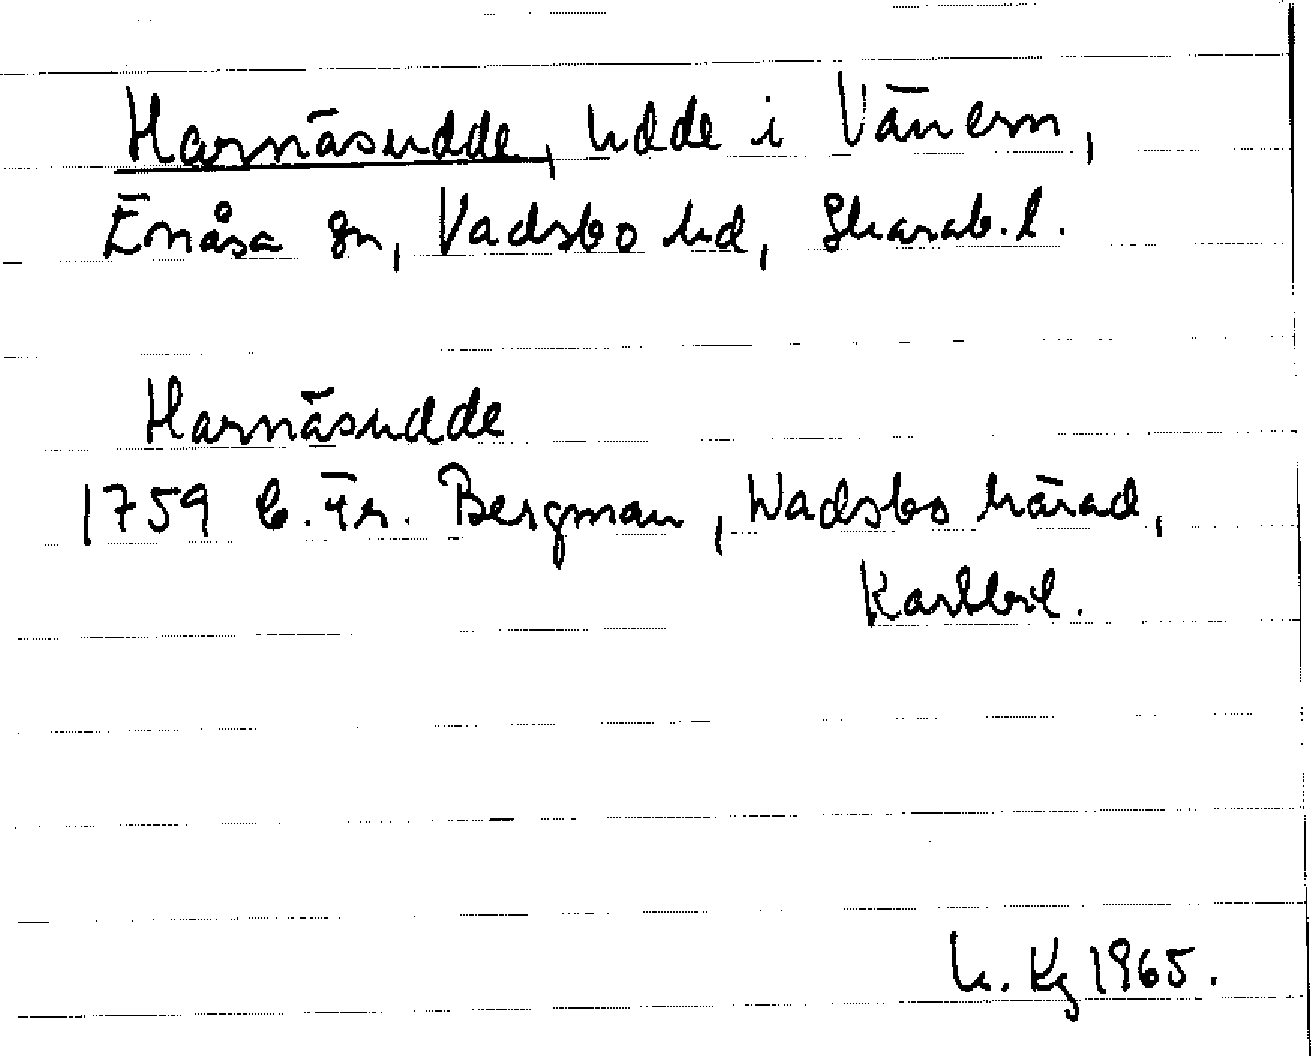 Harnäsudde, udde i Vänern,
Enåsa sn, Vadsbo hd, Skarab. l.
Harnäsudde
1759 C. Fr. Bergman, Wadsbo härad,
Kartbil.